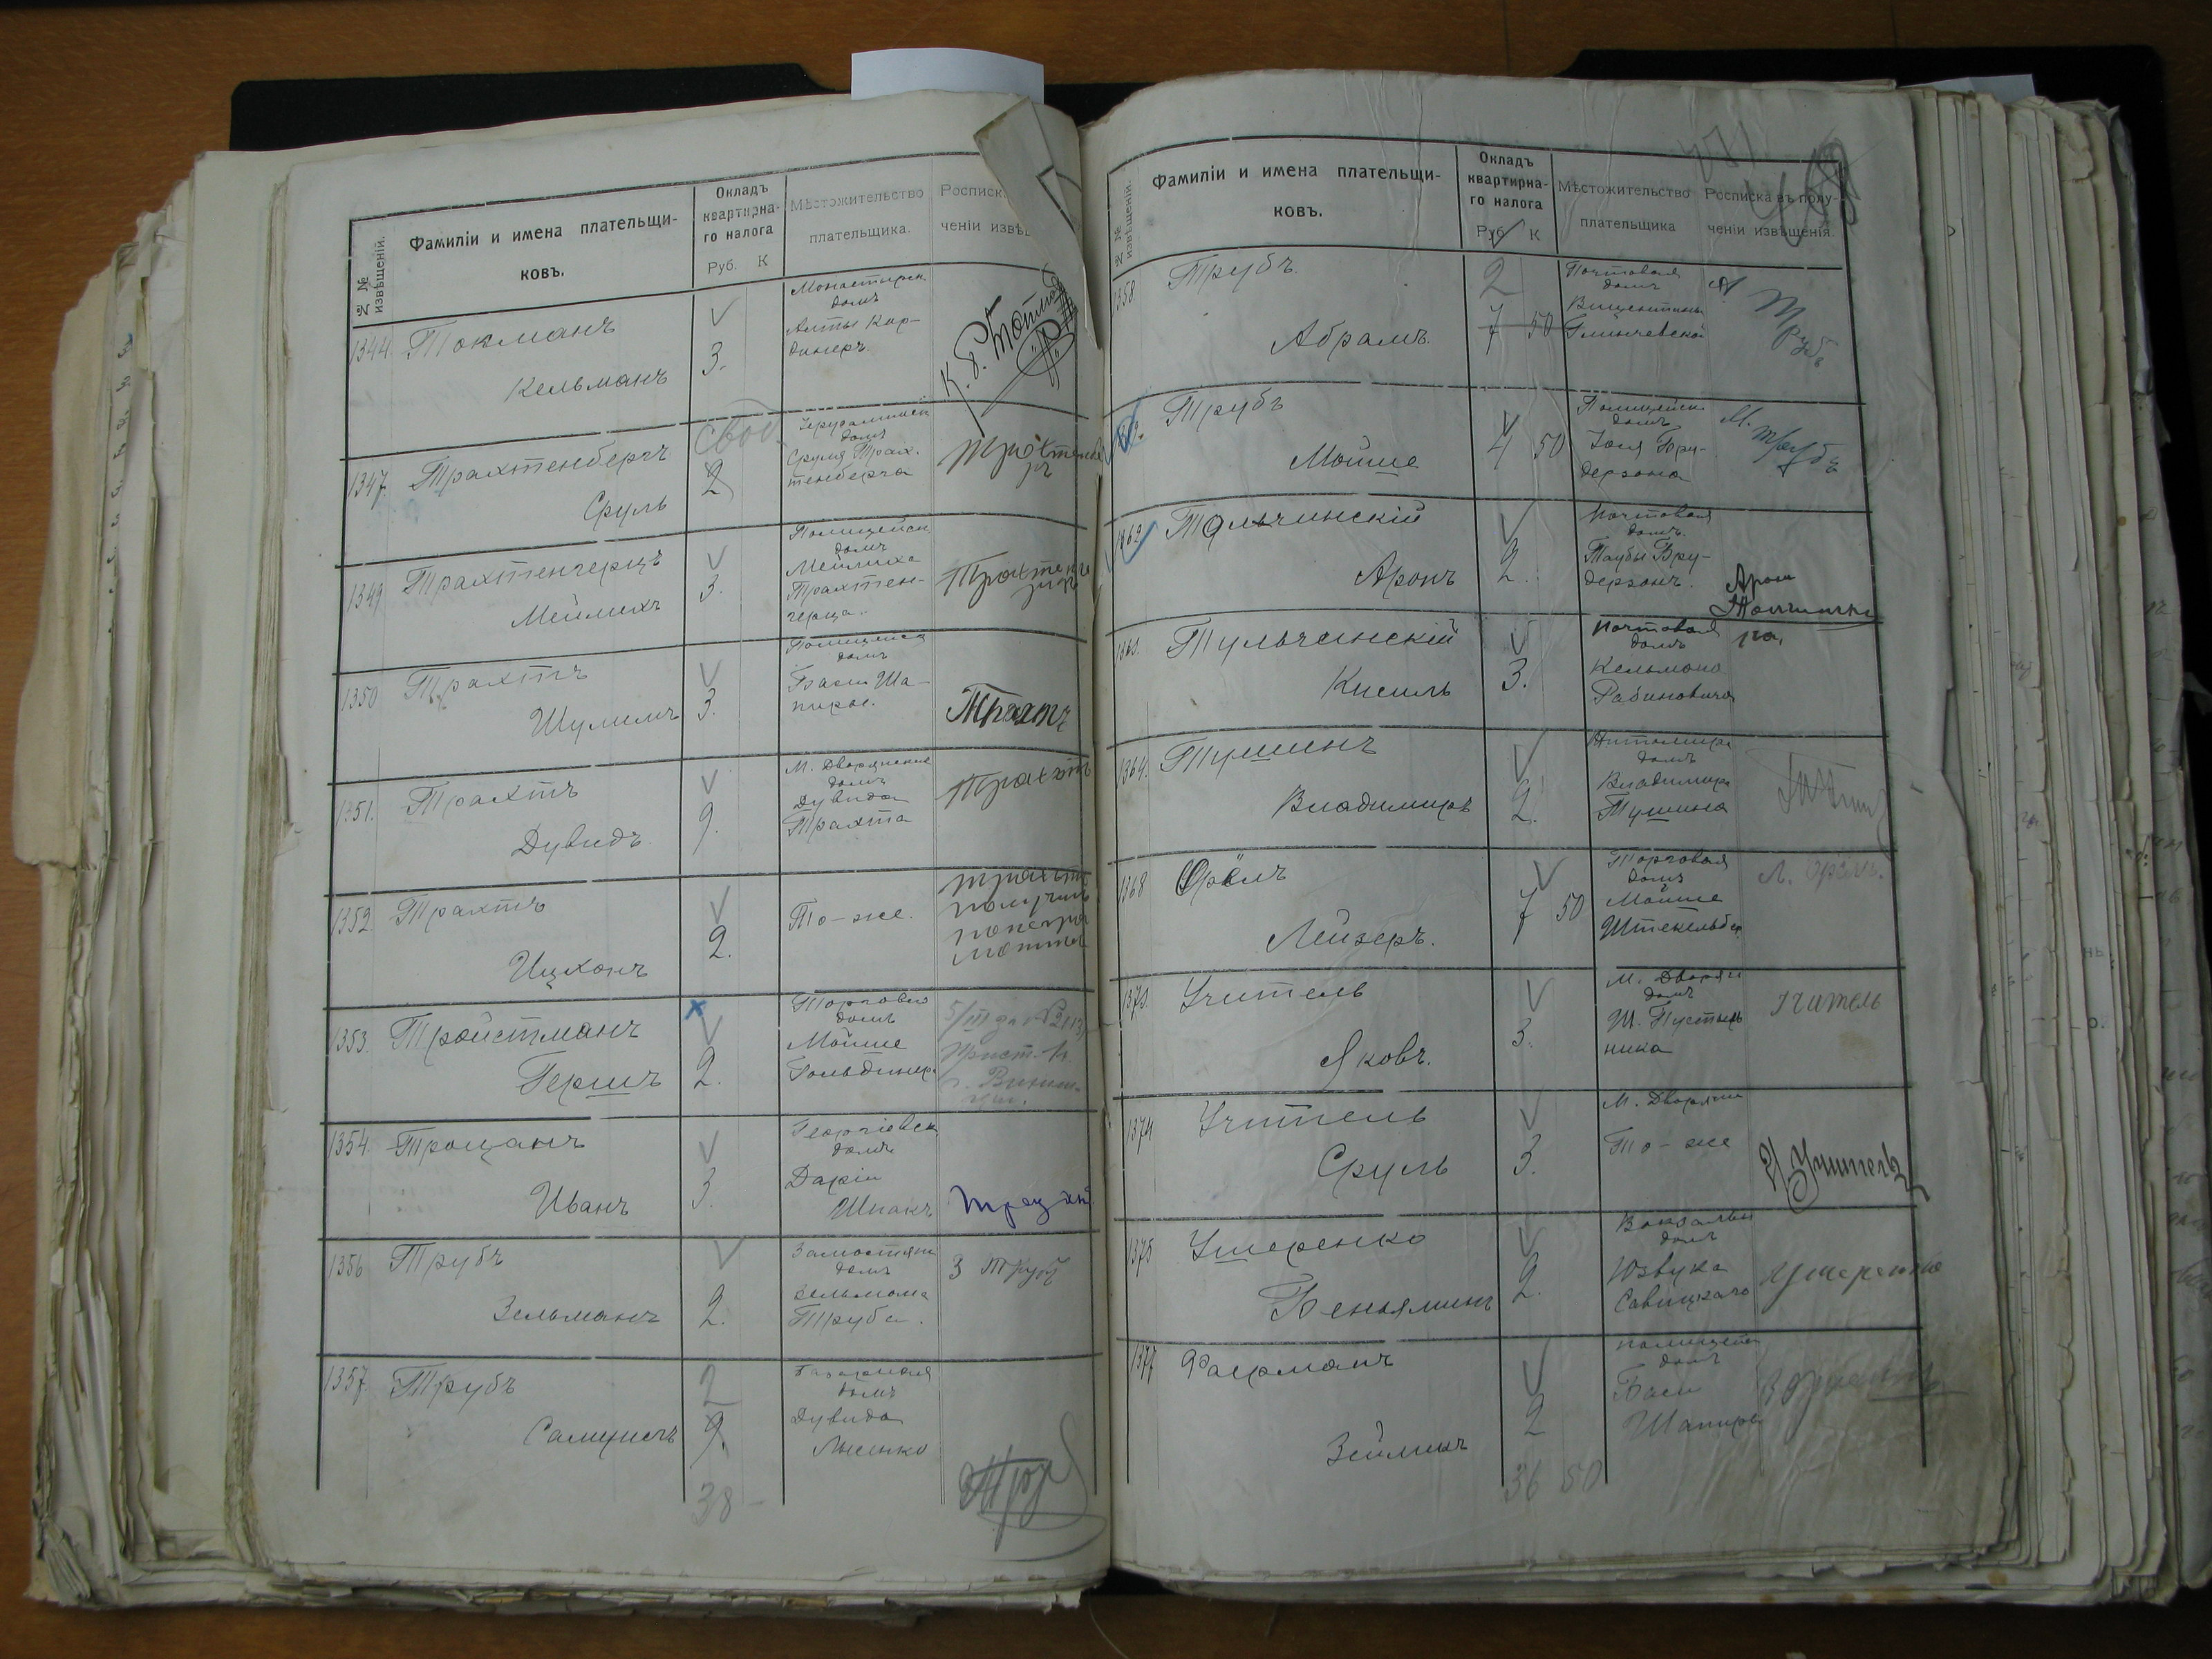 № № извѣщеній.
Фамиліи и имена плательщи-
ковъ.
Окладъ
квартирна-
го налога
Руб. К
Мѣстожительство
плательщика.
Росписк
ченіи извѣщ
1344. Токманъ
Кельманъ
3.
Монастырск
домъ
1347. Трахтенбергъ
Сруль
своб.
2
домъ
Сруля Трах-
тенберга
1349 Трахтенгерцъ
Меймихъ
3.
Полицейск
домъ
Меймиха
Трахтен-
герца.
Трахтенге
1350 Трахтъ
Шулимъ
3.
Полицейск
домъ
Баси Ша-
пиро.
Трахтъ
1351. Трахтъ
Дувидъ.
9.
М. Дворянская
домъ
Дувида
Трахта
Трахтъ
1352. Трахтъ
Ицхокъ
2.
То-же.
Трахтъ
получилъ
1353. Тройстманъ
Гершъ
2.
Торговая
домъ
Мойше
Гольдинер
5/III за № 2113
1354. Трощанъ
Иванъ
3.
Георгіевск
домъ
Даріи
Шпакъ
Трощан
1356 Трубъ
Зельманъ
2.
Замостян
домъ
Зельмана
Труба.
З Трубъ
1357. Трубъ
Самуилъ
2
9.
домъ
Дувида
Лысенко
38 -
№ № извѣщеній.
Фамиліи и имена плательщи-
ковъ.
Окладъ
квартирна-
го налога
Руб К
Мѣстожительство
плательщика
Росписка въ полу-
ченіи извѣщенія.
1358. Трубъ.
Абрамъ.
2
7 50
Почтовая
домъ
А Трубъ
Трубъ
Мойше
4 50
Полицейск
домъ
Іоня Бру-
дерзона
М. Трубъ
1362 Толчинскій
Аронъ
2.
Почтовая
домъ.
Таубы Бру-
дерзонъ.
Арон
1363. Тульчинскій
Кисиль
3.
Почтовая
домъ
Кельмана
Рабиновича
1364. Тушинъ
Владимиръ
2.
Житомир
домъ
Владимира
Тушина
1368 Орёлъ
Лейзеръ.
7 50
Торговая
домъ
Мойше
Штекельбер
Л. Орёлъ.
1373. Учитель
Яковъ.
3.
М. Дворян
домъ
Ш. Пустыль
ника
Учитель
1374 Учитель
Сруль
3.
М. Дворян
То-же
Учитель
1375 Ушеренко
Беньяминъ
2.
Вокзальн
домъ
Юзвука
Савицкаго
Ушеренко
1377 Фаерманъ
Зейликъ
2
Полицейск
домъ
Баси
Шапиро
36 50